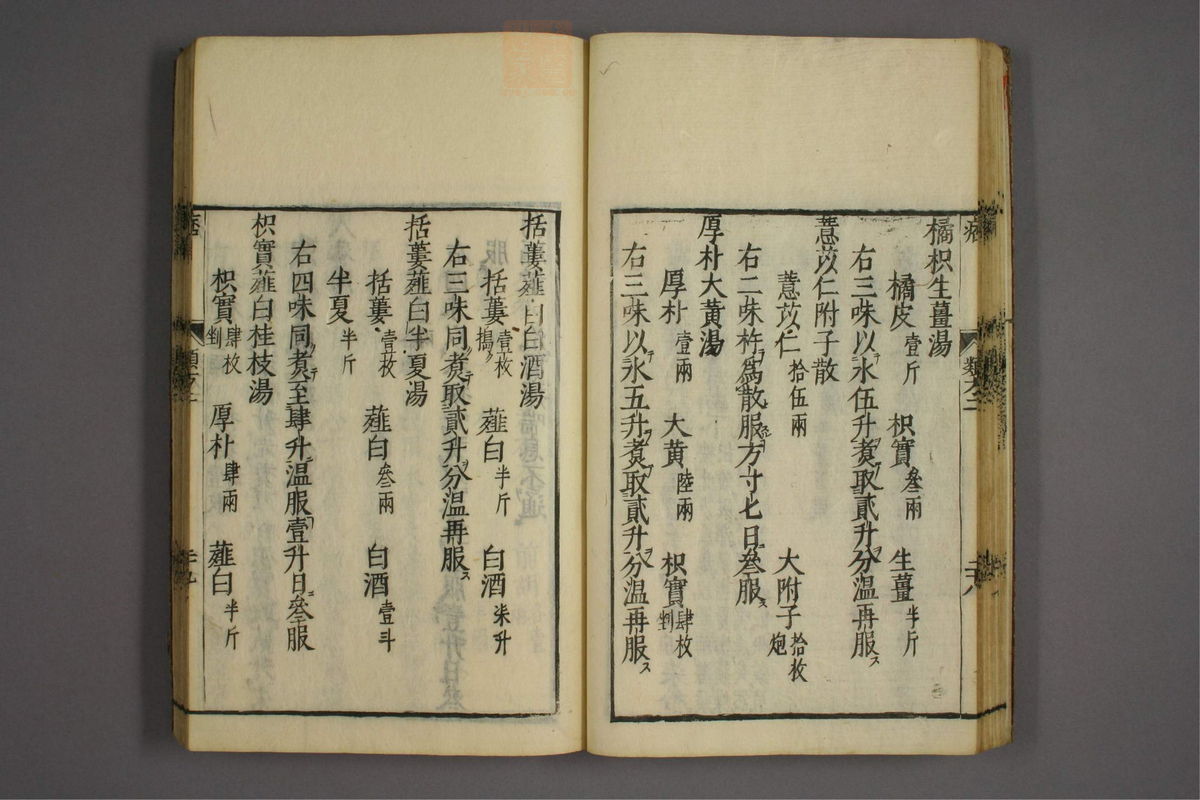 橘枳生薑湯
橘皮 壹斤 枳實 叄兩 生薑 半斤
右三味以水伍升煑取貳升分温再服ス
薏苡仁附子散
薏苡仁 拾伍兩 大附子 拾枚 炮
右二味杵爲散服方寸匕日叄服ス
厚朴大黄湯
厚朴 壹兩 大黄 陸兩 枳實 肆枚 剉
右三味以水五升煑取貳升分温再服ス
括蔞薤白白酒湯
括蔞 壹枚 搗 薤白 半斤 白酒 柒升
右三味同煑取貳升分温再服ス
括蔞薤白半夏湯
括蔞 壹枚 薤白 叄兩 白酒 壹斗
半夏 半斤
右四味同煑至肆升温服壹升日叄服
枳實薤白桂枝湯
枳實 肆枚 剉 厚朴 肆兩 薤白 半斤